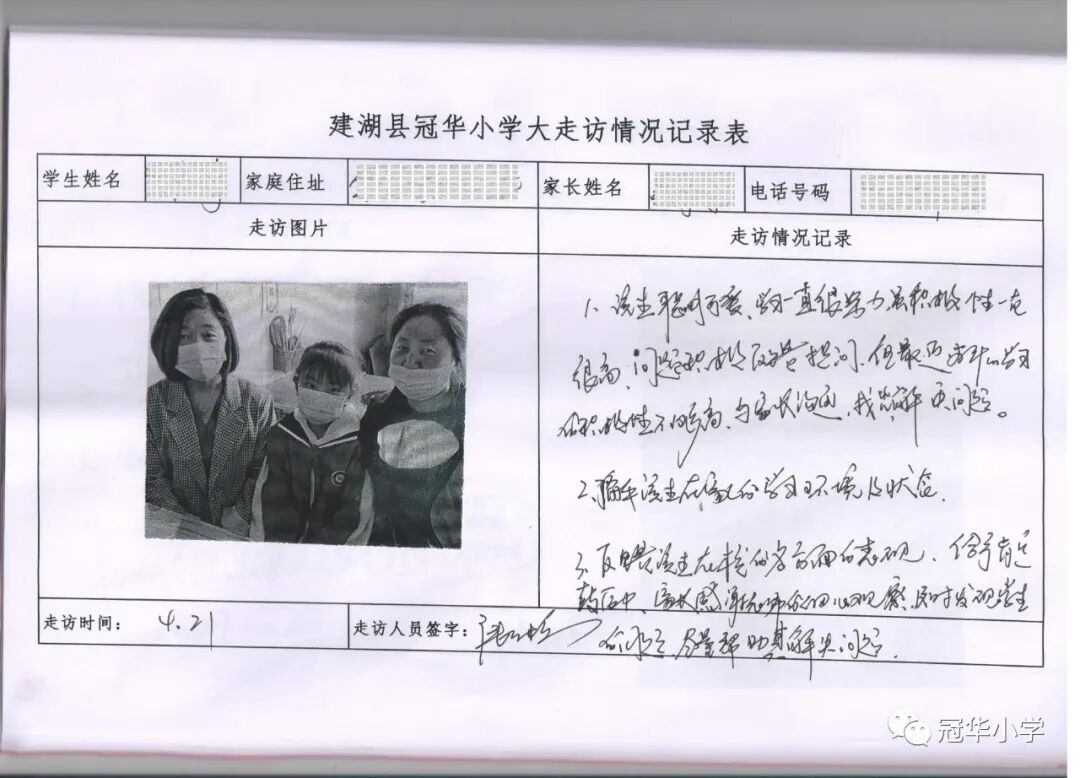 建湖县冠华小学大走访情况记录表
学生姓名 家庭住址 家长姓名 电话号码
走访图片 走访情况记录
1、该生聪明可爱、学习一直很努力且积极性一直
很高、问题积极 提问、但最近 学习
积极性不够高、与家长沟通，找 解决问题。
2、了解该生在家的学习环境及状态.
3、反映该生在校的各方面的表现、给予肯定
、家长感谢老师的细心观察、及时发现学生
的问题、尽量帮助其解决问题.
走访时间： 4.21 走访人员签字：
冠华小学